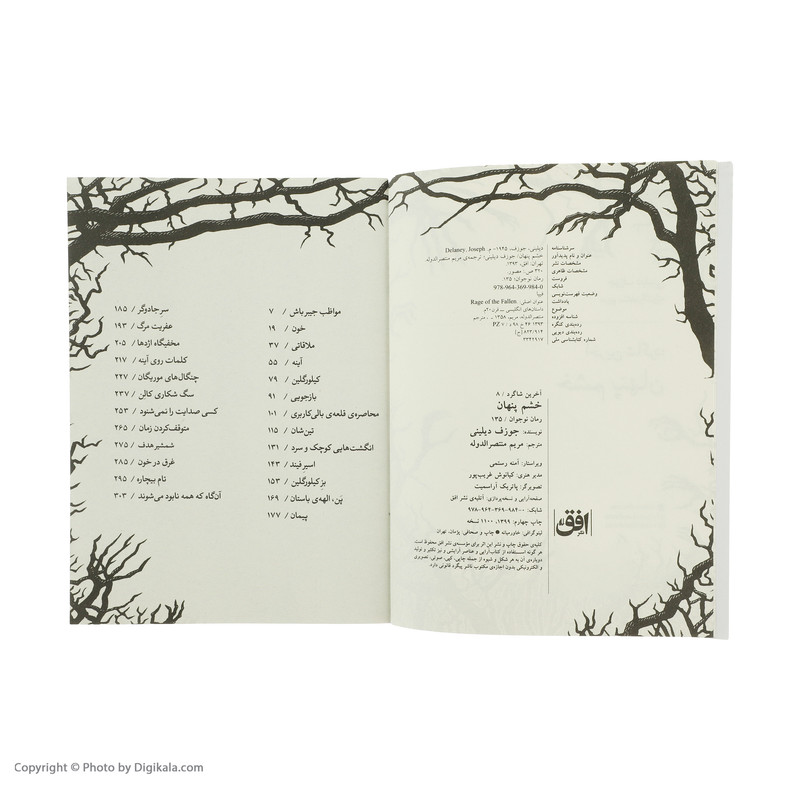 سرشناسه دیلینی، جوزف، ۱۹۴۵- م. Delaney, Joseph
عنوان و نام پدیدآور خشم پنهان/ جوزف دیلینی؛ ترجمه‌ی مریم منتصرالدوله.
مشخصات نشر تهران: افق، ۱۳۹۳.
مشخصات ظاهری ۳۱۰ ص.: مصور.
فروست رمان نوجوان؛ ۱۳۵
شابک 978-964-369-984-0
وضعیت فهرست‌نویسی فیپا
یادداشت عنوان اصلی: Rage of the Fallen
موضوع داستان‌های انگلیسی -- قرن ۲۰م.
شناسه افزوده منتصرالدوله، مریم، ۱۳۵۸ - ، مترجم
رده‌بندی کنگره PZ ۷ / ۹۵ خ ۴۶ ۱۳۹۳
رده‌بندی دیویی [ج] ۸۲۳/۹۱۴
شماره کتابشناسی ملی ۲۳۴۹۱۷
آخرین شاگرد / ۸
خشم پنهان
رمان نوجوان / ۱۳۵
نویسنده: جوزف دیلینی
مترجم: مریم منتصرالدوله
ویراستار: آمنه رستمی
مدیر هنری: کیانوش غریب‌پور
تصویرگر: پاتریک آراسمیت
صفحه‌آرایی و نسخه‌پردازی: آتلیه‌ی نشر افق
شابک: ۰-۹۸۴-۳۶۹-۹۶۴-۹۷۸
چاپ چهارم: ۱۳۹۹، ۱۱۰۰ نسخه
لیتوگرافی: خاورمیانه ● چاپ و صحافی: پژمان، تهران
کلیه‌ی حقوق چاپ و نشر این اثر برای مؤسسه‌ی نشر افق محفوظ است.
هر گونه استفاده از کتاب‌آرایی و عناصر آرایشی و نیز تکثیر و تولید
دوباره‌ی آن به هر شکل و شیوه از جمله چاپی، کپی، صوتی، تصویری
و الکترونیکی بدون اجازه‌ی مکتوب ناشر پیگرد قانونی دارد.
نشر افق
مواظب جیبرباش / ۷
خون / ۱۹
ملاقاتی / ۳۷
آینه / ۵۵
کیلورگلین / ۷۹
بازجویی / ۹۱
محاصره‌ی قلعه‌ی بالی‌کاربری / ۱۰۱
تین‌شان / ۱۱۵
انگشت‌هایی کوچک و سرد / ۱۳۱
اسیرفیند / ۱۴۳
بز کیلورگلین / ۱۵۳
پَن، الهه‌ی باستان / ۱۶۹
پیمان / ۱۷۷
سرجادوگر / ۱۸۵
عفریت مرگ / ۱۹۳
مخفیگاه اژدها / ۲۰۵
کلمات روی آینه / ۲۱۷
چنگال‌های موریگان / ۲۲۷
سگ شکاری کالن / ۲۳۷
کسی صدایت را نمی‌شنود / ۲۵۳
متوقف‌کردن زمان / ۲۶۵
شمشیر هدف / ۲۷۵
غرق در خون / ۲۸۵
تام بیچاره / ۲۹۵
آن‌گاه که همه نابود می‌شوند / ۳۰۳
Copyright © Photo by Digikala.com